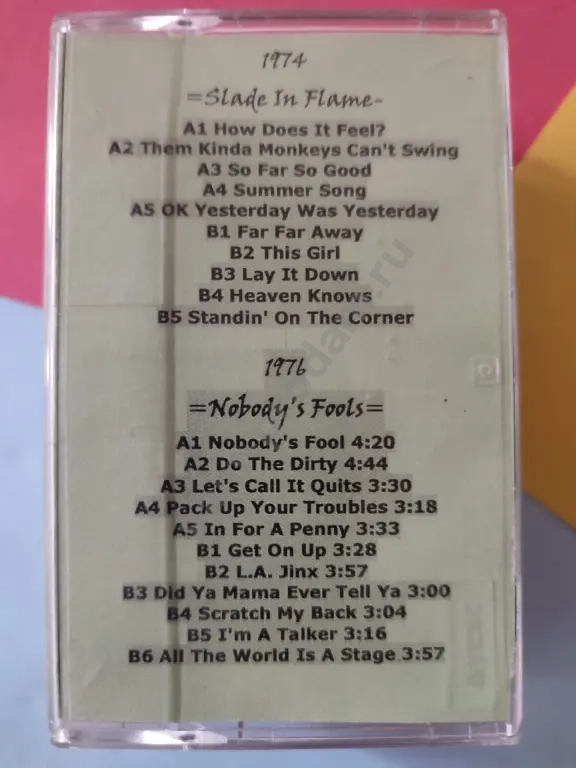 1974
=Slade In Flame-
A1 How Does It Feel?
A2 Them Kinda Monkeys Can't Swing
A3 So Far So Good
A4 Summer Song
A5 OK Yesterday Was Yesterday
B1 Far Far Away
B2 This Girl
B3 Lay It Down
B4 Heaven Knows
B5 Standin' On The Corner
1976
=Nobody's Fools=
A1 Nobody's Fool 4:20
A2 Do The Dirty 4:44
A3 Let's Call It Quits 3:30
A4 Pack Up Your Troubles 3:18
A5 In For A Penny 3:33
B1 Get On Up 3:28
B2 L.A. Jinx 3:57
B3 Did Ya Mama Ever Tell Ya 3:00
B4 Scratch My Back 3:04
B5 I'm A Talker 3:16
B6 All The World Is A Stage 3:57